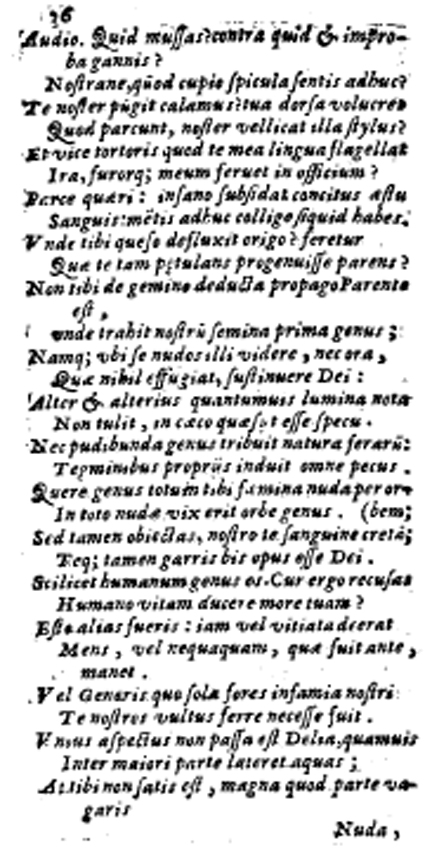 36
Audio. Quid mussas? contra quid & impro-
ba gannis?
Nostrane, quod cupio spicula sentis adhuc?
Te noster pũgit calamus? tua dorsa volucres
Quod parcunt, noster vellicat illa stylus?
Et vice tortoris quod te mea lingua flagellat
Ira, furorq; meum feruet in officium?
Parce quæri: insano subsidat concitus æstu
Sanguis: mẽtis adhuc collige siquid habes.
Vnde tibi queso defluxit origo? feretur
Quæ te tam petulans progenuisse parens?
Non tibi de gemino deducta propago Parente
est,
vnde trahit nostrũ semina prima genus;
Namq; vbi se nudos illi videre, nec ora,
Quæ nihil effugiat, sustinuere Dei:
Alter & alterius quantumuis lumina nota
Non tulit, in cæco quæsijt esse specu.
Nec pudibunda genus tribuit natura ferarũ:
Tegminibus proprijs induit omne pecus.
Quere genus totum tibi fæmina nuda per or-
In toto nudæ vix erit orbe genus. (bem;
Sed tamen obiectas, nostro te sanguine cretã;
Teq; tamen garris bis opus esse Dei.
Scilicet humanum genus es. Cur ergo recusas
Humano vitam ducere more tuam?
Esto alias fueris: iam vel vitiata deerat
Mens, vel nequaquam, quæ fuit ante,
manet.
Vel Generis quo sola fores infamia nostri
Te nostros vultus ferre necesse fuit.
Vnius aspectus non passa est Delia, quamuis
Inter maiori parte lateret aquas;
At tibi non satis est, magna quod parte va-
garis
Nuda,